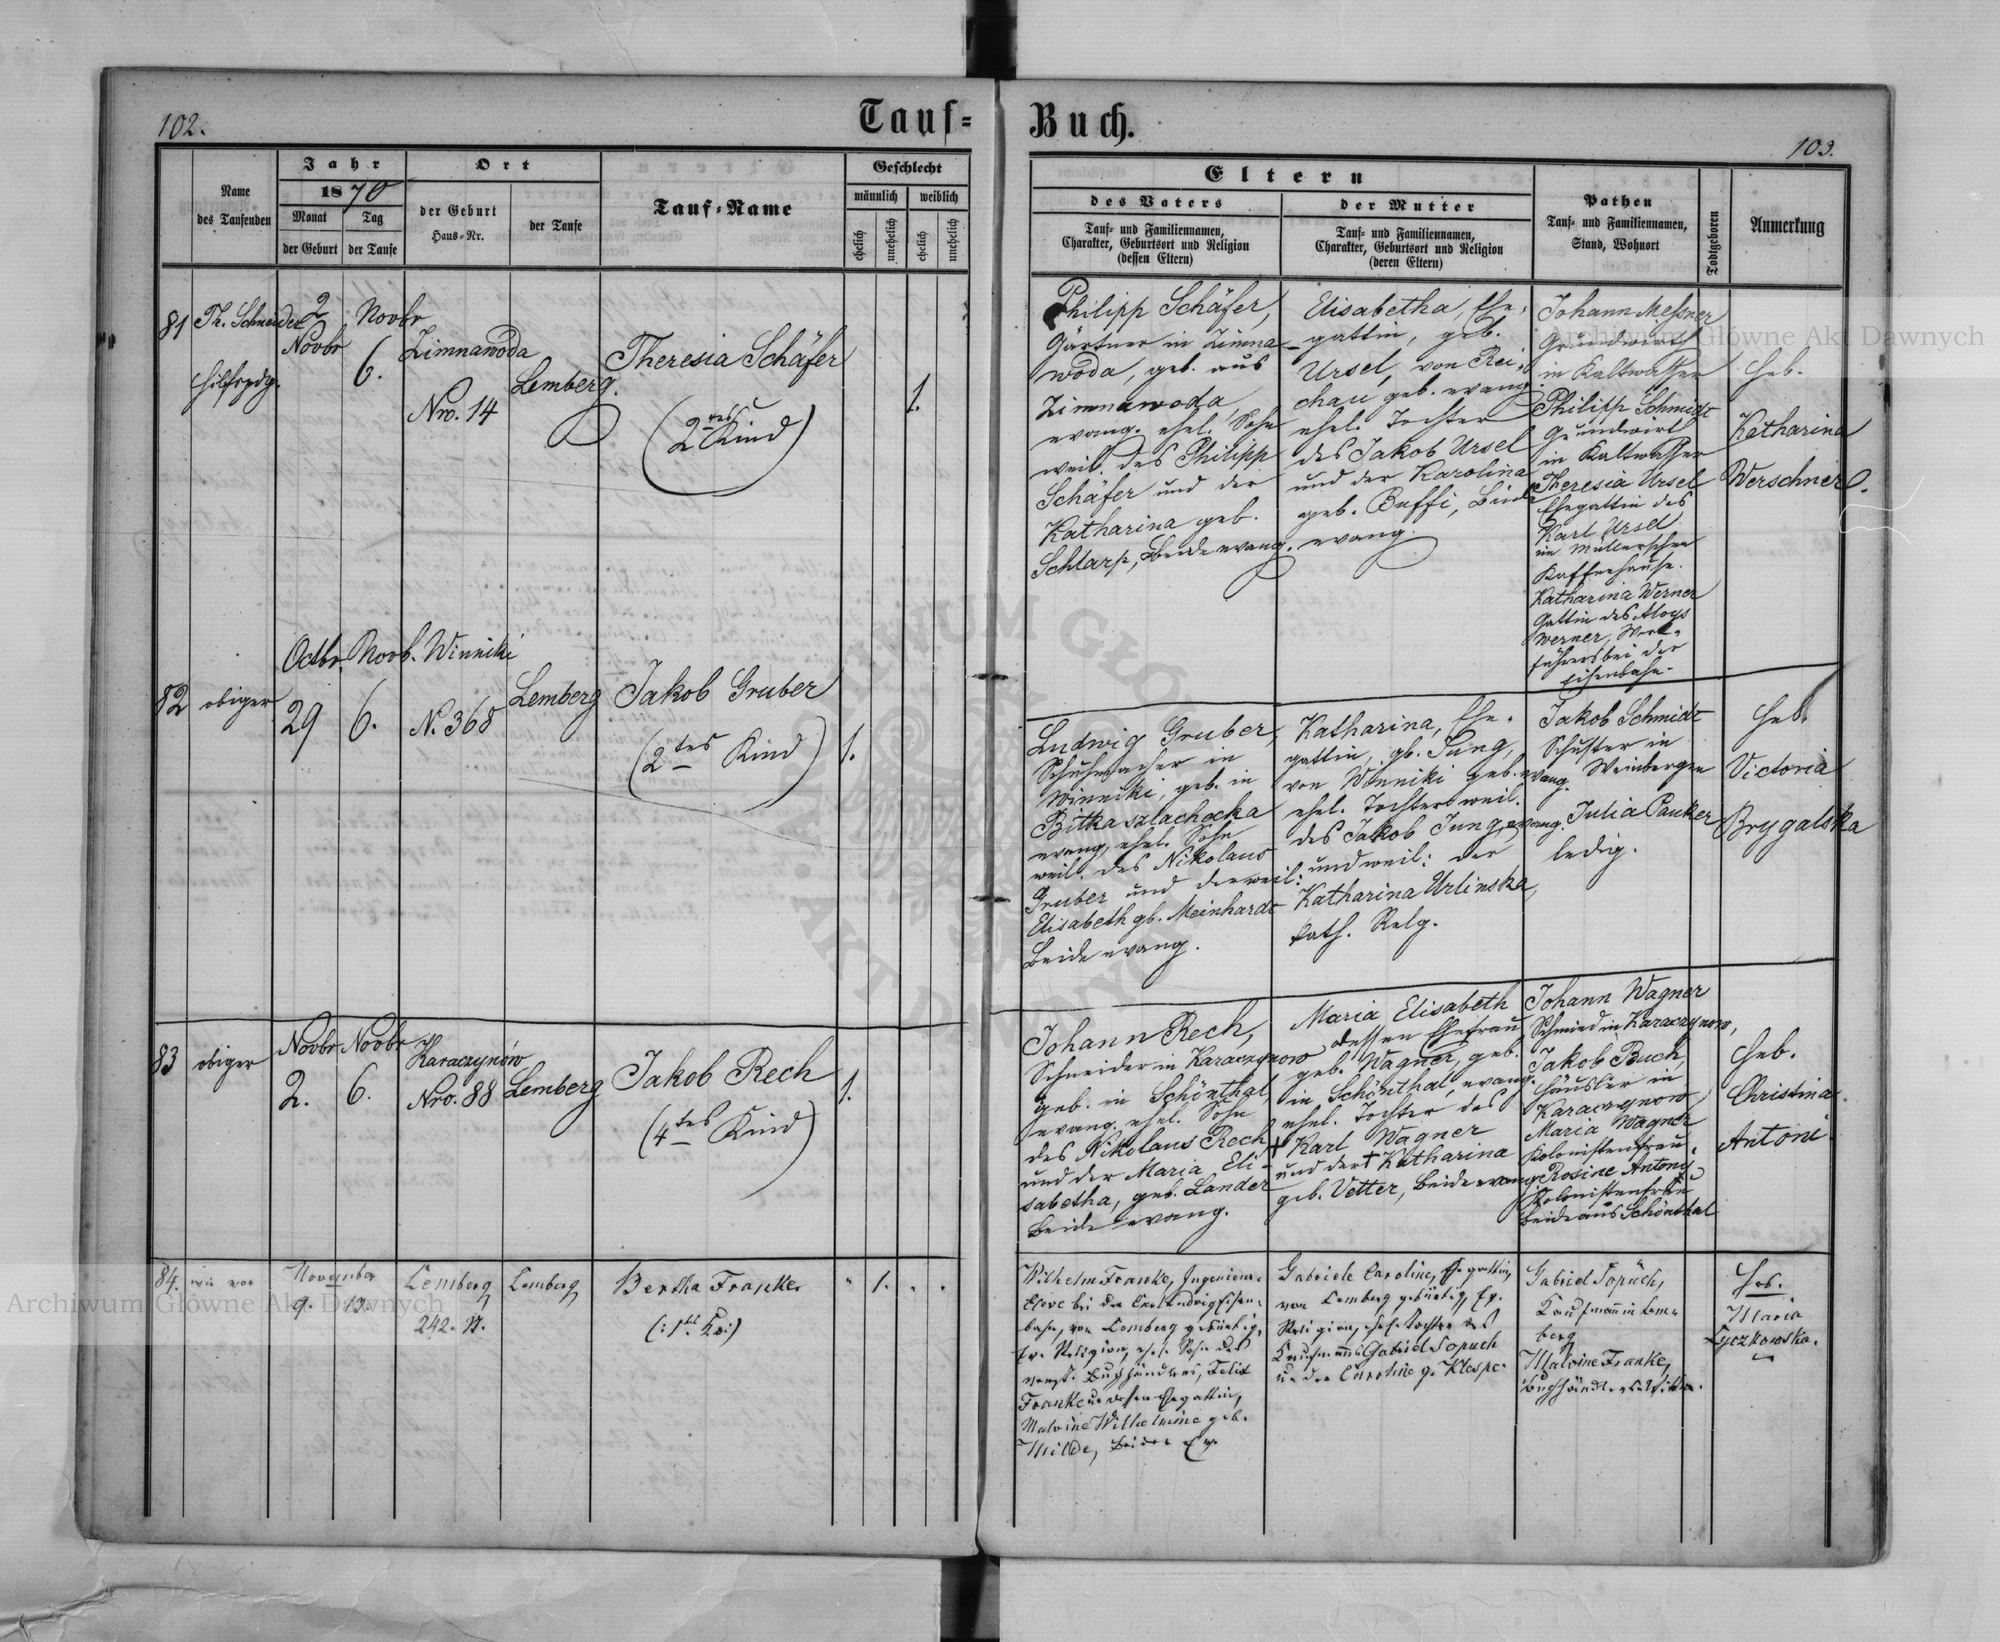 102.
Tauf=
Buch.
103.
Name
des Taufenden
Jahr
1870
Monat
der Geburt
Tag
der Taufe
Ort
der Geburt
Haus=Nr.
der Taufe
Tauf=Name
Geschlecht
männlich
weiblich
ehelich
unehelich
ehelich
unehelich
Eltern
des Vaters
Tauf= und Familiennamen,
Charakter, Geburtsort und Religion
(dessen Eltern)
der Mutter
Tauf= und Familiennamen,
Charakter, Geburtsort und Religion
(deren Eltern)
Pathen
Tauf= und Familiennamen,
Stand, Wohnort
Todtgeboren
Anmerkung
81
Th. Schneider
Hilfspdg.
2
Novbr
Novbr
6.
Zimnawoda
Nro. 14
Lemberg.
Theresia Schäfer
(2tes Kind)
1.
Philipp Schäfer,
Gärtner in Zimna
woda, geb. aus
Zimnawoda,
evang. ehel. Sohn
weil. des Philipp
Schäfer und der
Katharina geb.
Schlarp, beide evang.
Elisabetha, Ehe-
gattin, geb.
Ursel, von Rei-
chau geb. evang.
ehel. Tochter
des Jakob Ursel
und der Karolina
geb. Buffi, beide
evang.
Johann Messner
Grundwirth
in Kaltwasser
Philipp Schmidt
Grundwirth
in Kaltwasser
Theresia Ursel
Ehegattin des
Karl Ursel
im Müllerschen
Kaffeehause.
Katharina Werner
Gattin des Aloys
Werner, Werk-
führers bei der
Eisenbahn.
Heb.
Katharina
Werschner.
82
obiger
Octbr.
29
Novb.
6.
Winniki
N. 368
Lemberg
Jakob Gruber
(2tes Kind)
1.
Ludwig Gruber,
Schuhmacher in
Winniki, geb. in
Bitka szlachecka
evang, ehel. Sohn
weil. des Nikolaus
Gruber und der weil:
Elisabeth gb. Meinhardt
Beide evang.
Katharina, Ehe-
gattin, gb. Jung,
von Winniki geb. evang.
ehel. Tochter weil.
des Jakob Jung, evang.
und weil: der
Katharina Urlinska,
kath. Relg.
Jakob Schmidt
Schuster in
Weinbergen
Julia Pauker
ledig.
Heb.
Victoria
Brygalska
83
obiger
Novbr
2.
Novbr
6.
Karaczynów
Nro. 88
Lemberg
Jakob Rech
(4tes Kind)
1.
Johann Rech,
Schneider in Karaczynow
geb. in Schönthal,
evang. ehel. Sohn
des Nikolaus Rech
und der Maria Eli-
sabetha, geb. Lander
Beide evang.
Maria Elisabeth
dessen Ehefrau
geb. Wagner, geb.
in Schönthal, evang.
ehel. Tochter des
† Karl Wagner
und der † Katharina
geb. Vetter, beide evang.
Johann Wagner
Schmied in Karaczynow,
Jakob Buch,
Häusler in
Karaczynow,
Maria Wagner
Kolonistenfrau,
Rosine Antony
Kolonistenfrau
beide aus Schönthal
Heb.
Christina
Antoni
84.
wie vor
November
9. 13.
Lemberg
242. 4/4.
Lemberg
Bertha Franke.
1.
Wilhelm Franke, Ingenieur-
Eleve bei der Carl Ludwig Eisen-
bahn, von Lemberg gebürtig,
Ev. Religion, ehel. Sohn des
verst. Buchhändlers, Felix
Franke u. dessen Ehegattin,
Malvine Wilhelmine geb.
Milde, beide Ev.
Gabriele Caroline, Ehegattin,
von Lemberg gebürtig, Ev.
Religion, ehel. Tochter des
Kaufmanns Gabriel Sopuch
u. der Caroline g. Klespe.
Gabriel Sopuch,
Kaufmann in Lem-
berg
Malvine Franke,
Buchhändlerswittwe.
Heb.
Maria
Lyczkowska.
Archiwum Główne Akt Dawnych
Archiwum Główne Akt Dawnych